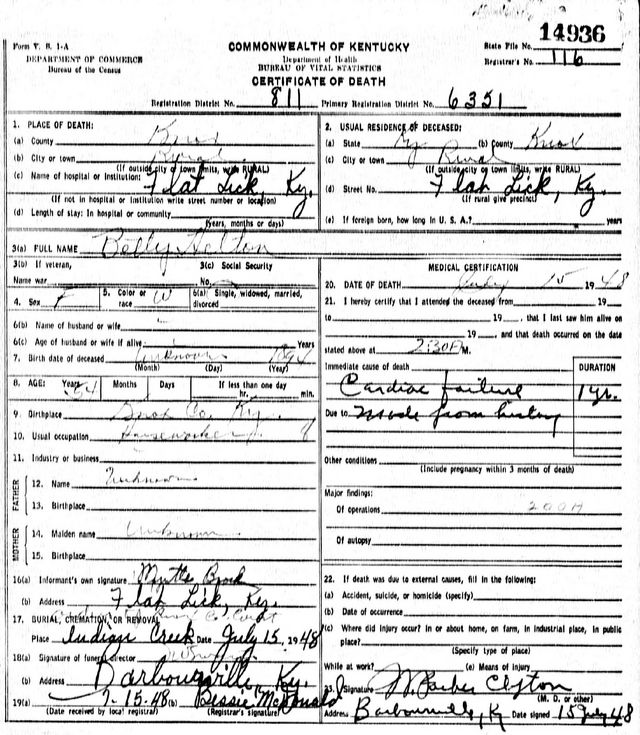 14936
Form V. S. 1-A
DEPARTMENT OF COMMERCE
Bureau of the Census
COMMONWEALTH OF KENTUCKY
Department of Health
BUREAU OF VITAL STATISTICS
CERTIFICATE OF DEATH
State File No.
Registrar's No. 116
Registration District No. 811 Primary Registration District No. 6351
1. PLACE OF DEATH:
(a) County Knox
(b) City or town Rural
(If outside city or town limits, write RURAL)
(c) Name of hospital or Institution: Flat Lick, Ky.
(If not in hospital or Institution write street number or location)
(d) Length of stay: In hospital or community
(Years, months or days)
2. USUAL RESIDENCE OF DECEASED:
(a) State Ky (b) County Knox
(c) City or town Rural
(If outside city or town limits, write RURAL)
(d) Street No. Flat Lick, Ky.
(If rural give precinct)
(e) If foreign born, how long in U. S. A.? years
3(a) FULL NAME Betty Helton
3(b) If veteran, 3(c) Social Security
Name war No.
4. Sex F 5. Color or race W 6(a) Single, widowed, married, divorced
6(b) Name of husband or wife
6(c) Age of husband or wife if alive Years
7. Birth date of deceased Unknown 1894
(Month) (Day) (Year)
8. AGE: Years 54 Months Days If less than one day
hr. min.
9. Birthplace Knox Co. Ky.
10. Usual occupation Houseworker
11. Industry or business
FATHER
12. Name Unknown
13. Birthplace
MOTHER
14. Maiden name Unknown
15. Birthplace
16(a) Informant's own signature Brock
(b) Address Flat Lick, Ky.
17. BURIAL, CREMATION, OR REMOVAL
Place Indian Creek Date July 15, 1948
18(a) Signature of funeral director
(b) Address Barbourville, Ky.
19(a) 7-15-48 (b) Bessie McDonald
(Date received by local registrar) (Registrar's signature)
MEDICAL CERTIFICATION
20. DATE OF DEATH July 15 1948
21. I hereby certify that I attended the deceased from 19
to 19 , that I last saw him alive on
19 , and that death occurred on the date
stated above at 2:30 P M.
Immediate cause of death DURATION
Cardiac failure 1 yr.
Due to Made from history
Other conditions
(Include pregnancy within 3 months of death)
Major findings:
Of operations 200H
Of autopsy
22. If death was due to external causes, fill in the following:
(a) Accident, suicide, or homicide (specify)
(b) Date of occurrence
(c) Where did injury occur? In or about home, on farm, in industrial place, in public
place?
(Specify type of place)
While at work? (e) Means of injury
23. Signature Parker Clayton
(M. D. or other)
Address Barbourville, Ky Date signed 15 July 48